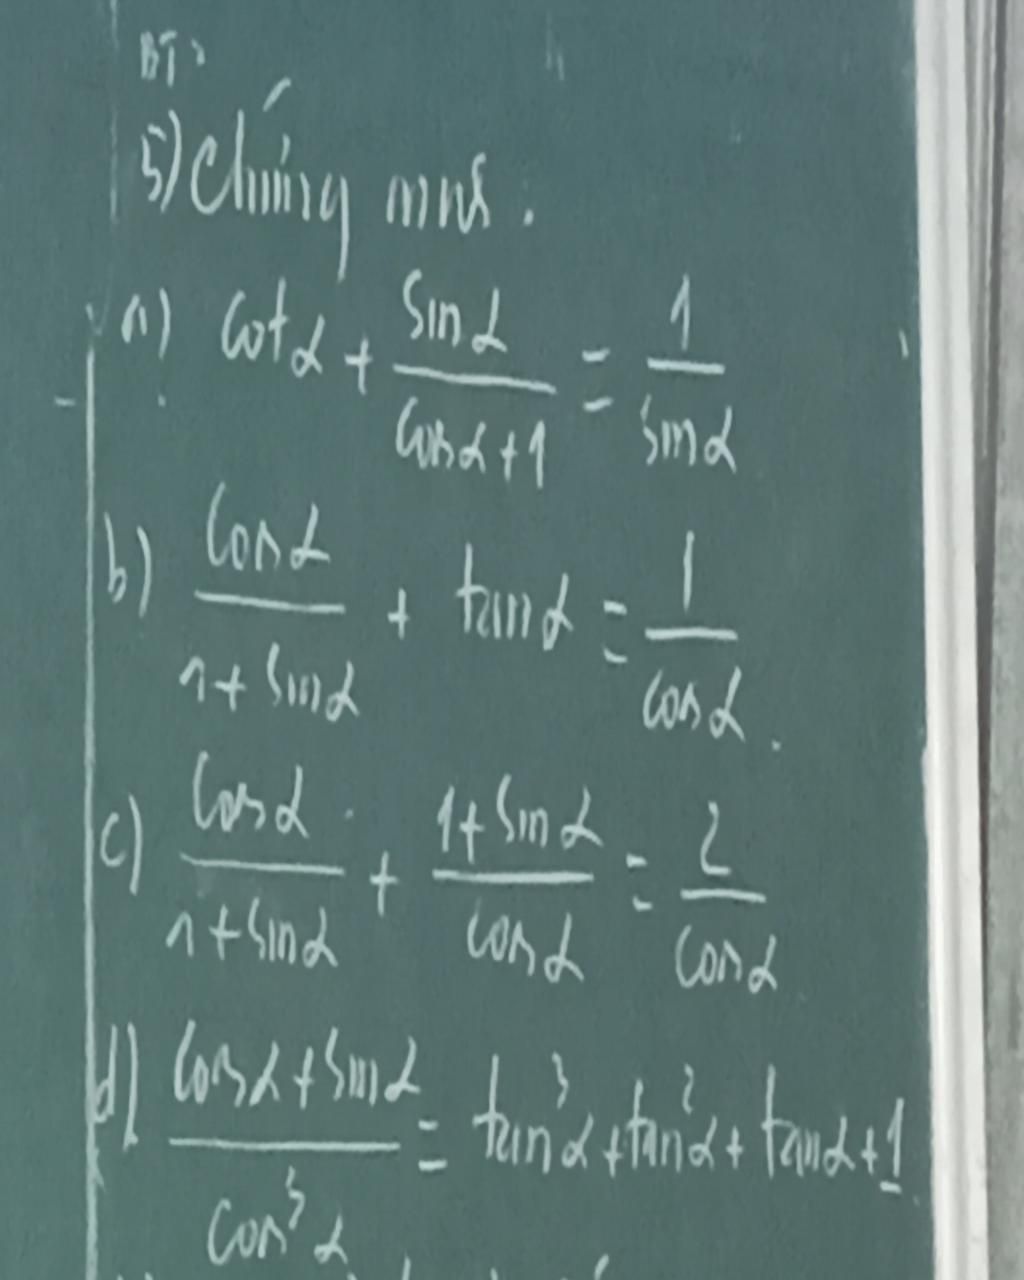 BT:
5) Chứng minh:
a) cotα + sinα/(cosα+1) = 1/sinα
b) cosα/(1+sinα) + tanα = 1/cosα.
c) cosα/(1+sinα) + (1+sinα)/cosα = 2/cosα
d) (cosα+sinα)/cos³α = tan³α+tan²α+tanα+1